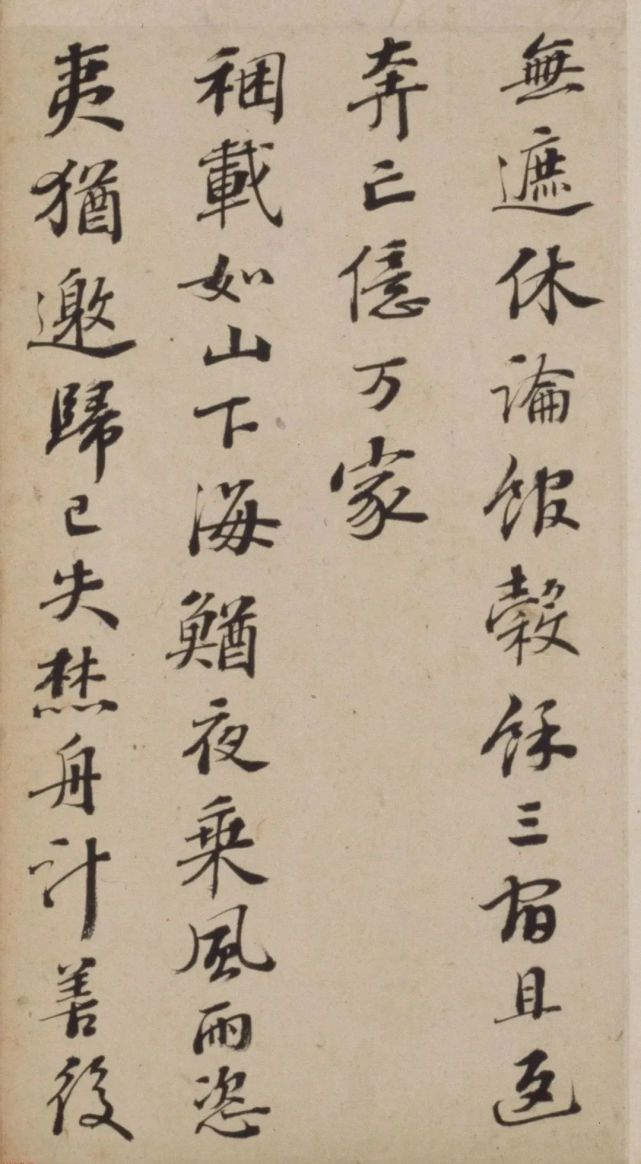 無遮休論館穀餘三宿且返
奔亡億万家
稛載如山下海鰌夜乘風雨恣
夷猶邀歸已失焚舟計善後